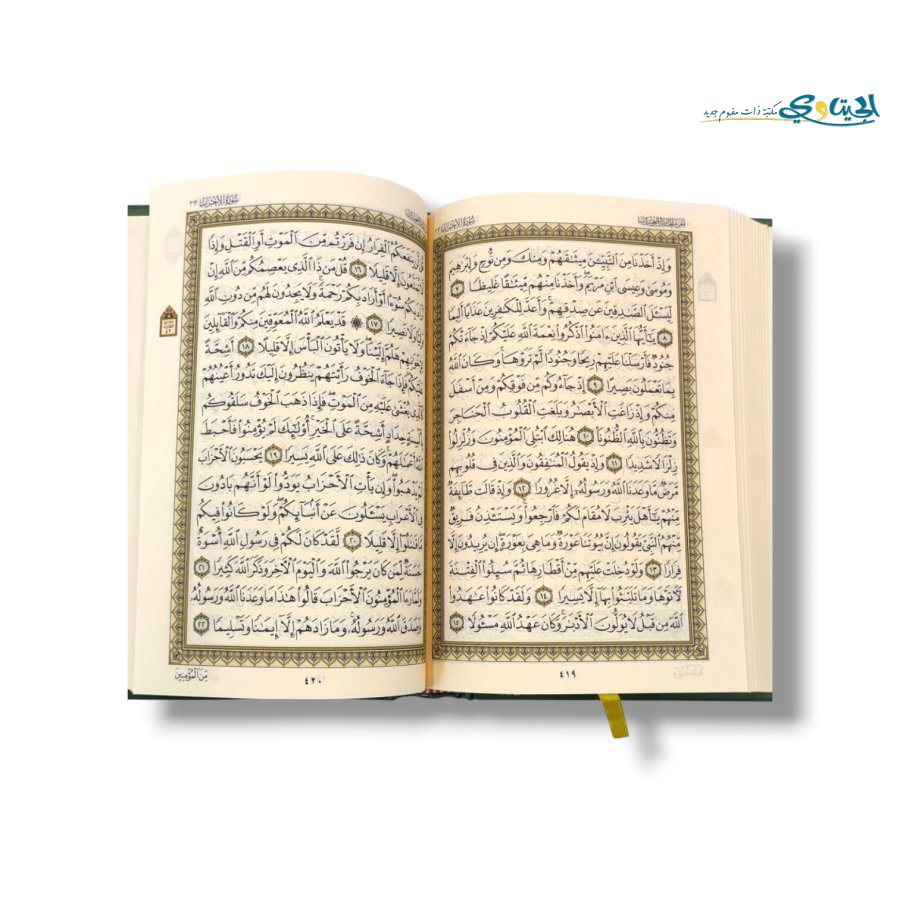 الجيتاوي مكتبة ذات مفهوم جديد
سُورَةُ الأَحْزَابِ
وَإِذْ أَخَذْنَا مِنَ ٱلنَّبِيِّـۧنَ مِيثَـٰقَهُمْ وَمِنكَ وَمِن نُّوحٍ وَإِبْرَٰهِيمَ
وَمُوسَىٰ وَعِيسَى ٱبْنِ مَرْيَمَ ۖ وَأَخَذْنَا مِنْهُم مِّيثَـٰقًا غَلِيظًا ٧
لِّيَسْـَٔلَ ٱلصَّـٰدِقِينَ عَن صِدْقِهِمْ ۚ وَأَعَدَّ لِلْكَـٰفِرِينَ عَذَابًا أَلِيمًا
٨ يَـٰٓأَيُّهَا ٱلَّذِينَ ءَامَنُوا۟ ٱذْكُرُوا۟ نِعْمَةَ ٱللَّهِ عَلَيْكُمْ إِذْ جَآءَتْكُمْ
جُنُودٌ فَأَرْسَلْنَا عَلَيْهِمْ رِيحًا وَجُنُودًا لَّمْ تَرَوْهَا ۚ وَكَانَ ٱللَّهُ
بِمَا تَعْمَلُونَ بَصِيرًا ٩ إِذْ جَآءُوكُم مِّن فَوْقِكُمْ وَمِنْ أَسْفَلَ
مِنكُمْ وَإِذْ زَاغَتِ ٱلْأَبْصَـٰرُ وَبَلَغَتِ ٱلْقُلُوبُ ٱلْحَنَاجِرَ
وَتَظُنُّونَ بِٱللَّهِ ٱلظُّنُونَا۠ ١٠ هُنَالِكَ ٱبْتُلِىَ ٱلْمُؤْمِنُونَ وَزُلْزِلُوا۟
زِلْزَالًا شَدِيدًا ١١ وَإِذْ يَقُولُ ٱلْمُنَـٰفِقُونَ وَٱلَّذِينَ فِى قُلُوبِهِم
مَّرَضٌ مَّا وَعَدَنَا ٱللَّهُ وَرَسُولُهُۥٓ إِلَّا غُرُورًا ١٢ وَإِذْ قَالَت طَّآئِفَةٌ
مِّنْهُمْ يَـٰٓأَهْلَ يَثْرِبَ لَا مُقَامَ لَكُمْ فَٱرْجِعُوا۟ ۚ وَيَسْتَـْٔذِنُ فَرِيقٌ
مِّنْهُمُ ٱلنَّبِىَّ يَقُولُونَ إِنَّ بُيُوتَنَا عَوْرَةٌ وَمَا هِىَ بِعَوْرَةٍ ۖ إِن يُرِيدُونَ إِلَّا
فِرَارًا ١٣ وَلَوْ دُخِلَتْ عَلَيْهِم مِّنْ أَقْطَارِهَا ثُمَّ سُئِلُوا۟ ٱلْفِتْنَةَ
لَـَٔاتَوْهَا وَمَا تَلَبَّثُوا۟ بِهَآ إِلَّا يَسِيرًا ١٤ وَلَقَدْ كَانُوا۟ عَـٰهَدُوا۟
ٱللَّهَ مِن قَبْلُ لَا يُوَلُّونَ ٱلْأَدْبَـٰرَ ۚ وَكَانَ عَهْدُ ٱللَّهِ مَسْـُٔولًا ١٥
٤١٩
سُورَةُ الأَحْزَابِ ٣٣
ٱلْفِرَارُ إِن فَرَرْتُم مِّنَ ٱلْمَوْتِ أَوِ ٱلْقَتْلِ وَإِذًا
تُمَتَّعُونَ إِلَّا قَلِيلًا ١٦ قُلْ مَن ذَا ٱلَّذِى يَعْصِمُكُم مِّنَ ٱللَّهِ إِنْ
بِكُمْ سُوٓءًا أَوْ أَرَادَ بِكُمْ رَحْمَةً ۚ وَلَا يَجِدُونَ لَهُم مِّن دُونِ ٱللَّهِ
وَلَا نَصِيرًا ١٧ ۞ قَدْ يَعْلَمُ ٱللَّهُ ٱلْمُعَوِّقِينَ مِنكُمْ وَٱلْقَآئِلِينَ
هَلُمَّ إِلَيْنَا ۖ وَلَا يَأْتُونَ ٱلْبَأْسَ إِلَّا قَلِيلًا ١٨ أَشِحَّةً
فَإِذَا جَآءَ ٱلْخَوْفُ رَأَيْتَهُمْ يَنظُرُونَ إِلَيْكَ تَدُورُ أَعْيُنُهُمْ
يُغْشَىٰ عَلَيْهِ مِنَ ٱلْمَوْتِ ۖ فَإِذَا ذَهَبَ ٱلْخَوْفُ سَلَقُوكُم
حِدَادٍ أَشِحَّةً عَلَى ٱلْخَيْرِ ۚ أُو۟لَـٰٓئِكَ لَمْ يُؤْمِنُوا۟ فَأَحْبَطَ
أَعْمَـٰلَهُمْ ۚ وَكَانَ ذَٰلِكَ عَلَى ٱللَّهِ يَسِيرًا ١٩ يَحْسَبُونَ ٱلْأَحْزَابَ
يَذْهَبُوا۟ ۖ وَإِن يَأْتِ ٱلْأَحْزَابُ يَوَدُّوا۟ لَوْ أَنَّهُم بَادُونَ
فِى ٱلْأَعْرَابِ يَسْـَٔلُونَ عَنْ أَنۢبَآئِكُمْ ۖ وَلَوْ كَانُوا۟ فِيكُم
مَّا قَـٰتَلُوٓا۟ إِلَّا قَلِيلًا ٢٠ لَّقَدْ كَانَ لَكُمْ فِى رَسُولِ ٱللَّهِ أُسْوَةٌ
حَسَنَةٌ لِّمَن كَانَ يَرْجُوا۟ ٱللَّهَ وَٱلْيَوْمَ ٱلْـَٔاخِرَ وَذَكَرَ ٱللَّهَ كَثِيرًا ٢١
وَلَمَّا رَءَا ٱلْمُؤْمِنُونَ ٱلْأَحْزَابَ قَالُوا۟ هَـٰذَا مَا وَعَدَنَا ٱللَّهُ وَرَسُولُهُۥ
وَصَدَقَ ٱللَّهُ وَرَسُولُهُۥ ۚ وَمَا زَادَهُمْ إِلَّآ إِيمَـٰنًا وَتَسْلِيمًا ٢٢
٤٢٠
مِّنَ ٱلْمُؤْمِنِينَ